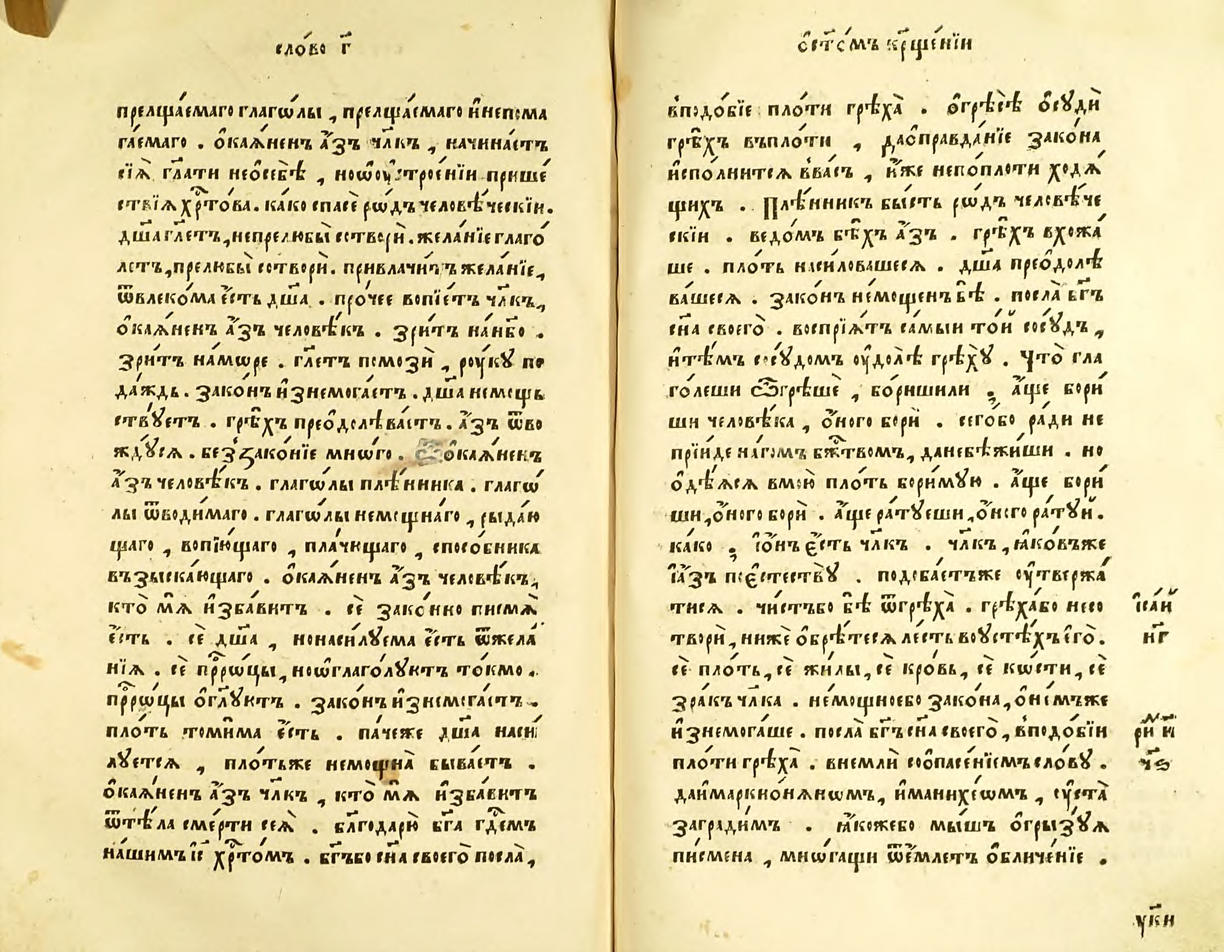 сло́во г҃
прелща́емаго глаго́лы , прелща́емаго и҆непома
га́емаго . ѻ҆кая́ненъ а҆́зъ чл҃къ , начина́етъ
сїѧ̀ гл҃ати неѡ҆себѣ̀ , ноѡ҆ꙋ҆строе́нїи прише́
ствїѧ хрⷭ҇това . ка́ко спасѐ рѡ́дъ человѣ́ческїи .
дш҃а гл҃етъ , непрелюбы̀ сотворѝ . жела́нїе глаго́
летъ , прелюбы̀ сотворѝ . привлачи́тъ жела́нїе ,
ѿвлеко́ма є҆́сть дш҃а . про́чее вопїе́тъ чл҃къ ,
ѻ҆кая́ненъ а҆́зъ человѣ́къ . зри́тъ нан҃бо .
зри́тъ намо́ре . гл҃етъ помозѝ , рꙋ́кꙋ по
да́ждь . зако́нъ и҆знемога́етъ . дш҃а немощь
ствꙋетъ . грѣ́хъ преѡ҆долѣва́етъ . а҆́зъ ѿво
ждꙋ́сѧ . без̾зако́нїе мно́го . ѻ҆кая́ненъ
а҆́зъ человѣ́къ . глаго́лы плѣ́нника . глаго́
лы ѿводи́магѡ . глаго́лы немощна́го , рыда́ю
щаго , вопїю́щаго , пла́чющаго , спосо́бника
възыска́ющаго . ѻ҆кая́ненъ а҆́зъ человѣ́къ ,
кто̀ мѧ̀ и҆зба́витъ . сѐ зако́нно писмѧ̀
є҆́сть . сѐ дш҃а , нонаси́лꙋема є҆́сть ѿжела́
нїѧ . сѐ прⷪ҇ро́цы , ноѡ҆глаго́лꙋютъ то́кмо .
прⷪ҇ро́цы ѡ҆гл҃ꙋютъ . зако́нъ и҆знемога́етъ .
пло́ть томи́ма є҆́сть . па́чеже дш҃а наси́
лꙋетсѧ , пло́тьже немощна̀ быва́етъ .
ѻ҆кая́ненъ а҆́зъ чл҃къ , кто̀ мѧ̀ и҆зба́витъ
ѿтѣ́ла сме́рти сеѧ̀ . благодарю̀ бг҃а гдⷭ҇емъ
на́шимъ і҆с҃ хрⷭ҇то́мъ . бг҃ъбо сн҃а своего̀ посла̀ ,
ѡ҆ст҃о́мъ крⷳ҇ще́нїи
вподо́бїе пло́ти грѣха̀ . ѡ҆грѣсѣ̀ ѡ҆сꙋдѝ
грѣ́хъ въпло́ти , даѡ҆правда́нїе зако́на
и҆спо́лнитсѧ вва́съ , и҆́же непопло́ти ходѧ́
щихъ . Плѣ́нникъ бы́сть рѡ́дъ человѣ́че
скїи . ведо́мъ бѣ́хъ а҆́зъ . грѣ́хъ вхожа́
ше . пло́ть наси́ловашесѧ . дш҃а преѡ҆долѣ
ва́шесѧ . зако́нъ не́мощенъ бѣ̀ . посла̀ бг҃ъ
сн҃а своего̀ . воспрїѧ́тъ са́мыи то́й сосꙋ́дъ ,
и҆тѣ́мъ сосꙋ́домъ ѹ҆долѣ̀ грѣхꙋ̀ . Что̀ гла
го́леши ѽгрѣшѐ , бори́шили ; а҆́ще бори́
ши человѣ́ка , ѻ҆́ного борѝ . сегѡ́бо ра́ди не
прїи́де наги́мъ бжⷭ҇тво́мъ , данебѣжи́ши . но
ѻ҆дѣ́ѧсѧ вмою̀ пло́ть бори́мꙋю . а҆́ще бори́
ши , ѻ҆́ного борѝ . а҆́ще ра́тꙋеши , ѻ҆́ного ра́тꙋй .
ка́ко ; і҆ѻ҆́нъ є҆́сть чл҃къ . чл҃къ , ꙗ҆ко́въже
і҆а҆́зъ поє҆стествꙋ̀ . подоба́етъже ѹ҆твержа́
тисѧ . чи́стъбо бѣ̀ ѿгрѣха̀ . грѣха́бо несо
творѝ , ниже́ ѡ҆брѣ́тесѧ ле́сть воꙋстѣ́хъ є҆го̀ .
сѐ пло́ть , сѐ жи́лы , сѐ кро́вь , сѐ ко́сти , сѐ
зра́къ чл҃ка . немощноебо зако́на , ѡ҆не́мъже
и҆знемога́ше . посла̀ бг҃ъ сн҃а своего̀ , вподо́бїи
пло́ти грѣха̀ . внемлѝ соѡ҆пасе́нїемъ сло́вꙋ .
даймаркїонѧ́нѡмъ , и҆манихе́ѡмъ , ѹ҆ста̀
загради́мъ . ꙗ҆́кожебо мы́шъ ѡ҆грызꙋ́ѧ
писмена̀ , мно́гащи ѿе́млетъ ѡ҆бличе́нїе .
і҆са́й
нг҃
ри́м
укн